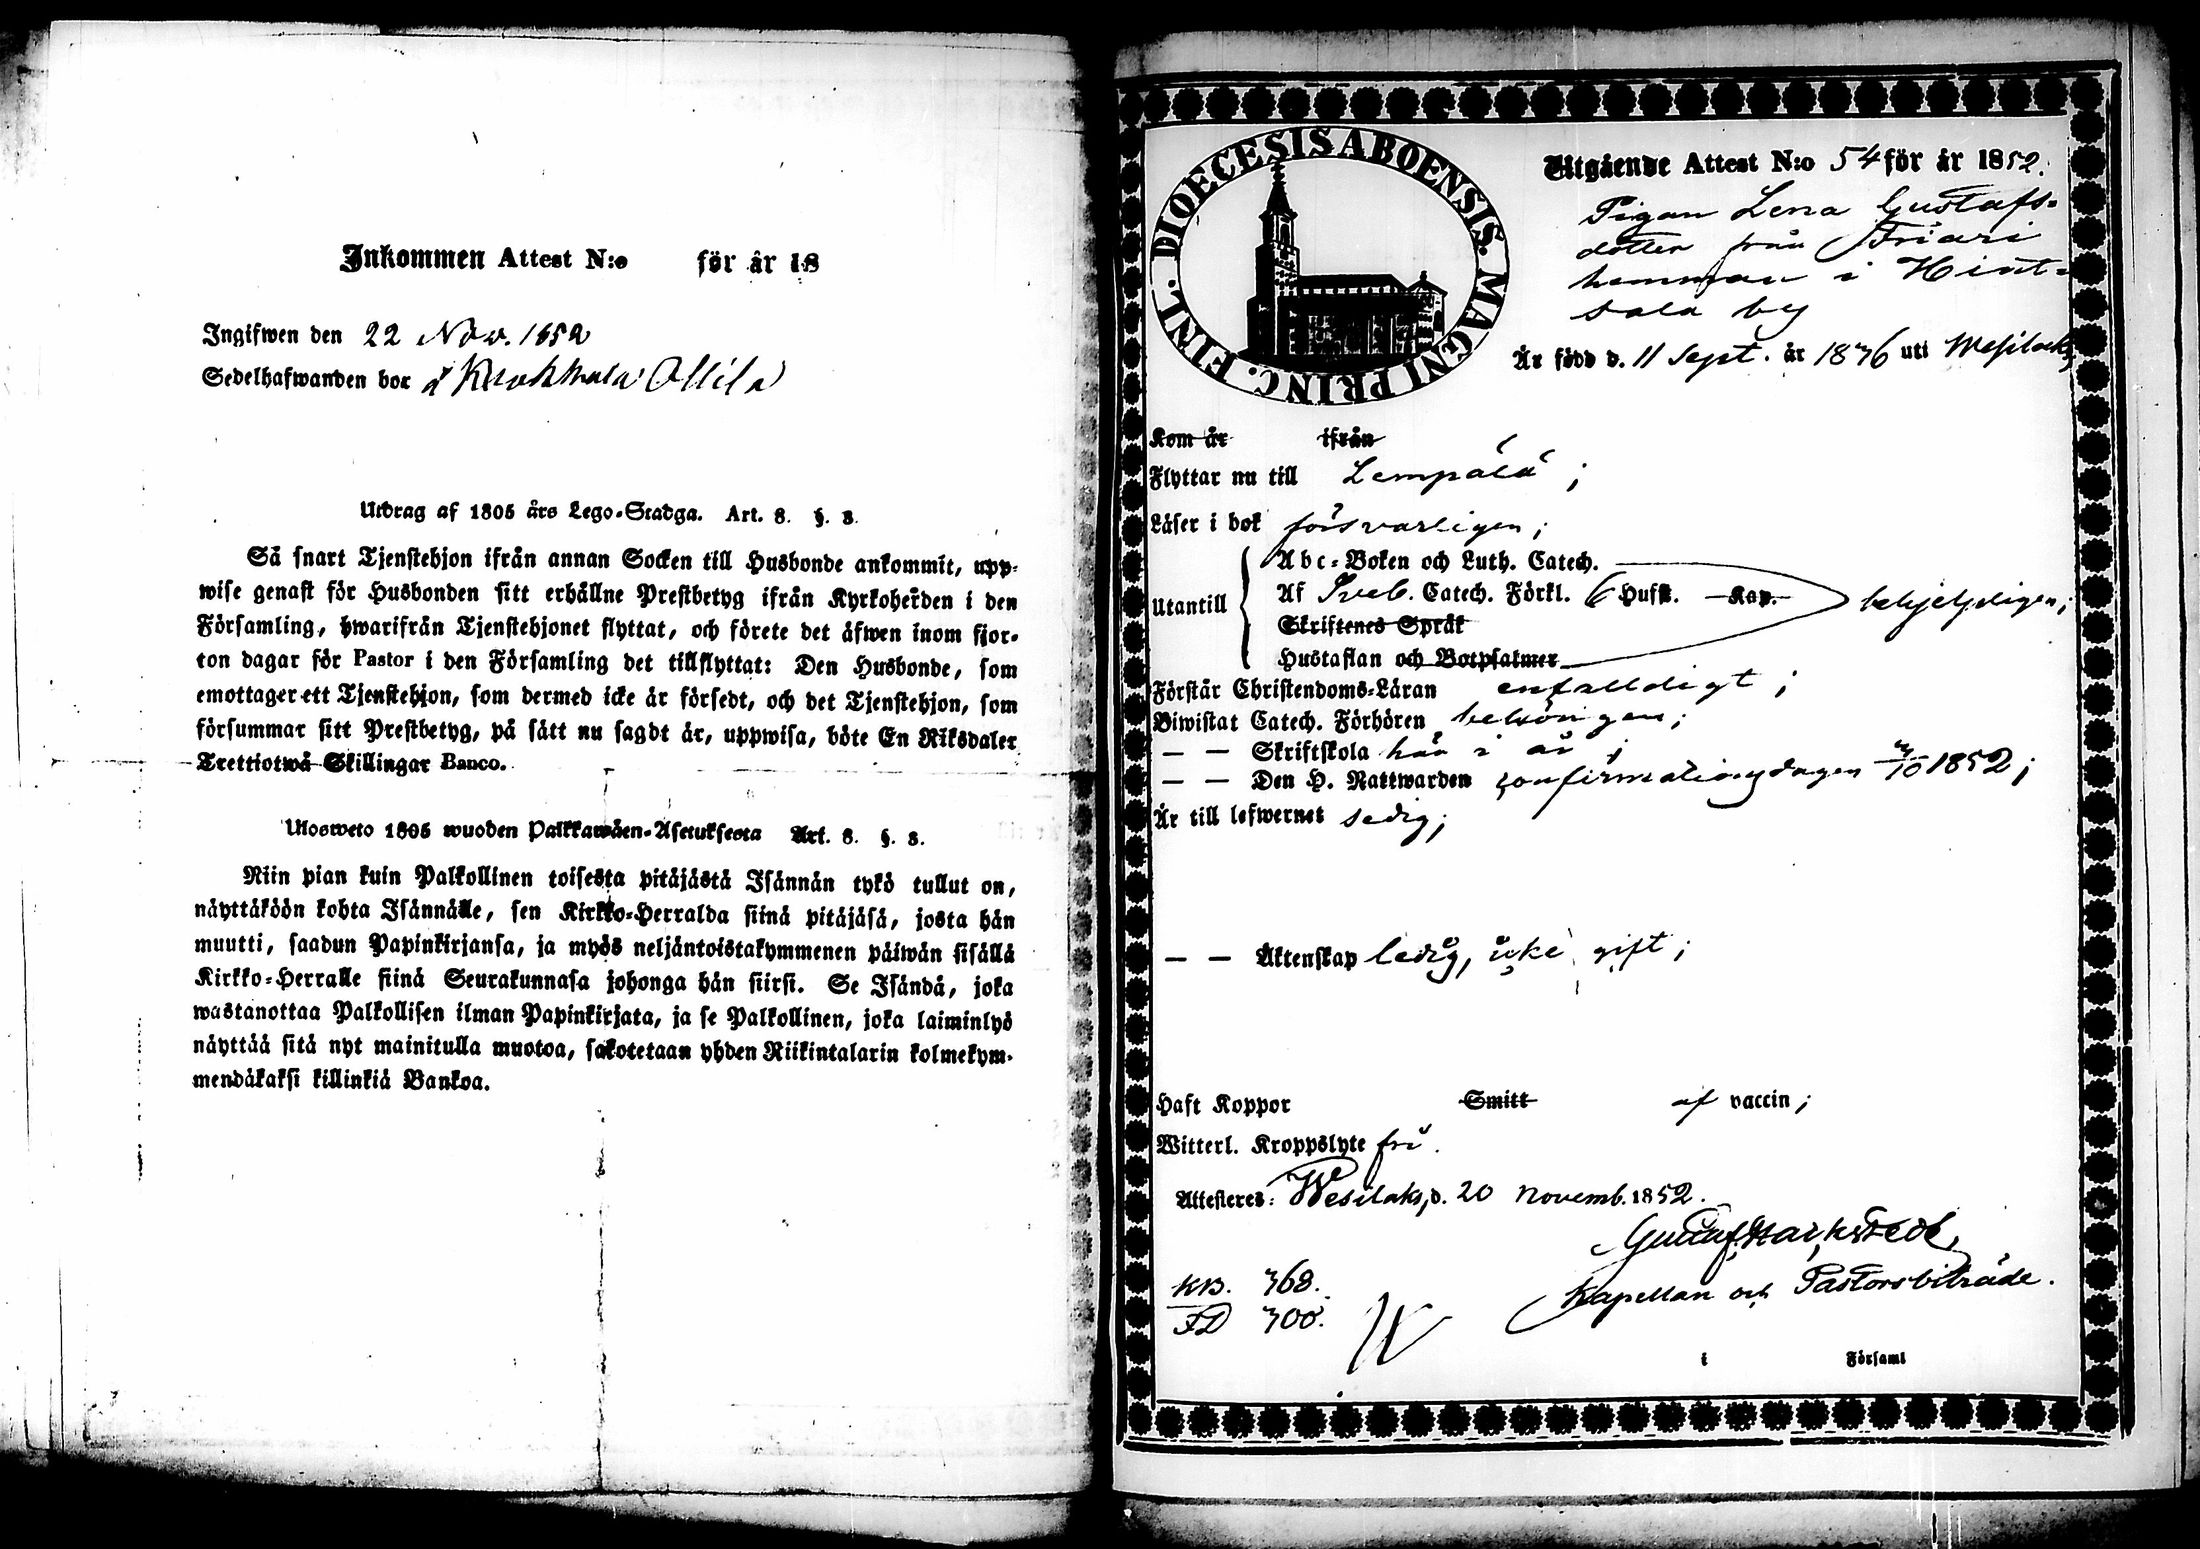 Inkommen Attest N:o för år 18
Ingifwen den 22 Nov. 1852
Sedelhafwanden bor å Kuokkala Ollila
Utdrag af 1805 års Lego-Stadga. Art. 8. §. 3.
Så snart Tjenstehjon ifrån annan Socken till Husbonde ankommit, upp-
wise genast för Husbonden sitt erhållne Prestbetyg ifrån Kyrkoherden i den
Församling, hwarifrån Tjenstehjonet flyttat, och förete det äfwen inom fjor-
ton dagar för Pastor i den Församling det tillflyttat: Den Husbonde, som
emottager ett Tjenstehjon, som dermed icke är försedt, och det Tjenstehjon, som
försummar sitt Prestbetyg, på sätt nu sagdt är, uppwisa, böte En Riksdaler
Trettiotwå Skillingar Banco.
Ulosweto 1805 wuoden Palkkawäen-Asetuksesta Art. 8. §. 3.
Niin pian kuin Palkollinen toisesta pitäjästä Isännän tykö tullut on,
näyttäköön kohta Isännälle, sen Kirkko-Herralda siinä pitäjäsä, josta hän
muutti, saadun Papinkirjansa, ja myös neljäntoistakymmenen päiwän sisällä
Kirkko-Herralle siinä Seurakunnasa johonga hän siirsi. Se Isändä, joka
wastanottaa Palkollisen ilman Papinkirjata, ja se Palkollinen, joka laiminlyö
näyttää sitä nyt mainitulla muotoa, sakotetaan yhden Riikintalarin kolmekym-
mendäkaksi killinkiä Bankoa.
DIOECESIS ABOENSIS. MAGNI PRINC. FINL.
Utgående Attest N:o 54 för år 1852.
Pigan Lena Gustafs-
dotter från Friari
hemman i Hint-
sala by
Är född d. 11 Sept. år 1836 uti Wesilaks;
Kom år ifrån
Flyttar nu till Lempälä;
Läser i bok försvarligen;
Abc-Boken och Luth. Catech.
Utantill Af Sveb. Catech. Förkl. 6 Hufst. Kap. behjelpligen;
Skriftenes Språk
Hustaflan och Botpsalmer
Förstår Christendoms-Läran enfalldigt;
Biwistat Catech. Förhören behörigen;
— — Skriftskola här i år;
— — Den H. Nattwarden confirmationsdagen 1852;
Är till lefwernet sedig;
— — Äktenskap ledig, icke gift;
Haft Koppor Smitt af vaccin;
Witterl. Kroppslyte fri.
Attesteras: Wesilaks, d. 20 Novemb. 1852.
Gustaf
Kapellan och Pastorsbiträde.
KB. 368.
FD 300.
i Församl